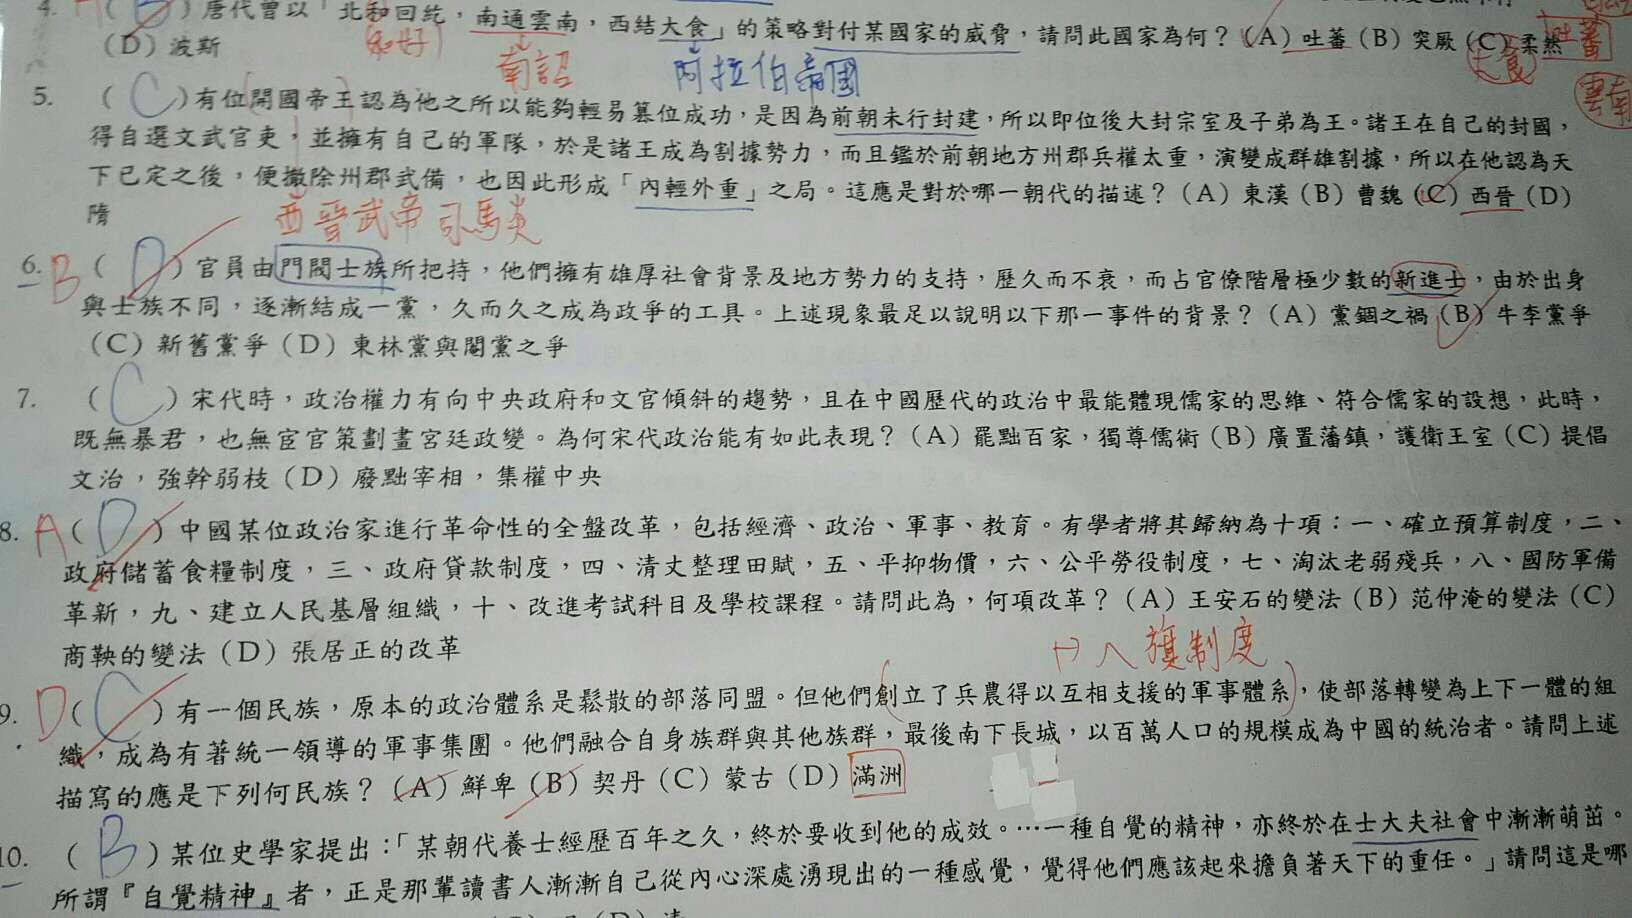 4. A ( B ) 唐代曾以「北和回紇，南通雲南，西結大食」的策略對付某國家的威脅，請問此國家為何？(A) 吐蕃 (B) 突厥 (C) 柔然
(D) 波斯
(和好)
南詔
阿拉伯帝國
大食
吐蕃
雲南
5. ( C ) 有位開國帝王認為他之所以能夠輕易篡位成功，是因為前朝未行封建，所以即位後大封宗室及子弟為王。諸王在自己的封國，
得自選文武官吏，並擁有自己的軍隊，於是諸王成為割據勢力，而且鑑於前朝地方州郡兵權太重，演變成群雄割據，所以在他認為天
下已定之後，便撤除州郡武備，也因此形成「內輕外重」之局。這應是對於哪一朝代的描述？(A) 東漢 (B) 曹魏 (C) 西晉 (D)
隋
西晉武帝司馬炎
6. B ( D ) 官員由門閥士族所把持，他們擁有雄厚社會背景及地方勢力的支持，歷久而不衰，而占官僚階層極少數的新進士，由於出身
與士族不同，逐漸結成一黨，久而久之成為政爭的工具。上述現象最足以說明以下那一事件的背景？(A) 黨錮之禍 (B) 牛李黨爭
(C) 新舊黨爭 (D) 東林黨與閹黨之爭
7. ( C ) 宋代時，政治權力有向中央政府和文官傾斜的趨勢，且在中國歷代的政治中最能體現儒家的思維、符合儒家的設想，此時，
既無暴君，也無宦官策劃宮廷政變。為何宋代政治能有如此表現？(A) 罷黜百家，獨尊儒術 (B) 廣置藩鎮，護衛王室 (C) 提倡
文治，強幹弱枝 (D) 廢黜宰相，集權中央
8. A ( D ) 中國某位政治家進行革命性的全盤改革，包括經濟、政治、軍事、教育。有學者將其歸納為十項：一、確立預算制度，二、
政府儲蓄食糧制度，三、政府貸款制度，四、清丈整理田賦，五、平抑物價，六、公平勞役制度，七、淘汰老弱殘兵，八、國防軍備
革新，九、建立人民基層組織，十、改進考試科目及學校課程。請問此為，何項改革？(A) 王安石的變法 (B) 范仲淹的變法 (C)
商鞅的變法 (D) 張居正的改革
八旗制度
9. D ( C ) 有一個民族，原本的政治體系是鬆散的部落同盟。但他們創立了兵農得以互相支援的軍事體系，使部落轉變為上下一體的組
織，成為有著統一領導的軍事集團。他們融合自身族群與其他族群，最後南下長城，以百萬人口的規模成為中國的統治者。請問上述
描寫的應是下列何民族？(A) 鮮卑 (B) 契丹 (C) 蒙古 (D) 滿洲
10. ( B ) 某位史學家提出：「某朝代養士經歷百年之久，終於要收到他的成效。…一種自覺的精神，亦終於在士大夫社會中漸漸萌茁。
所謂『自覺精神』者，正是那輩讀書人漸漸自己從內心深處湧現出的一種感覺，覺得他們應該起來擔負著天下的重任。」請問這是哪